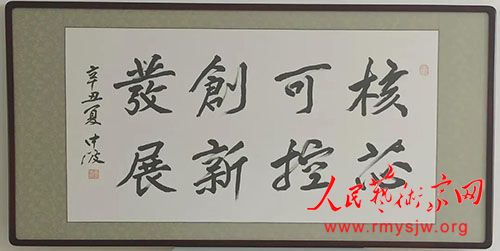 核芯
可控
創新
發展
辛丑夏中波
人民藝術家网
www.rmysjw.org